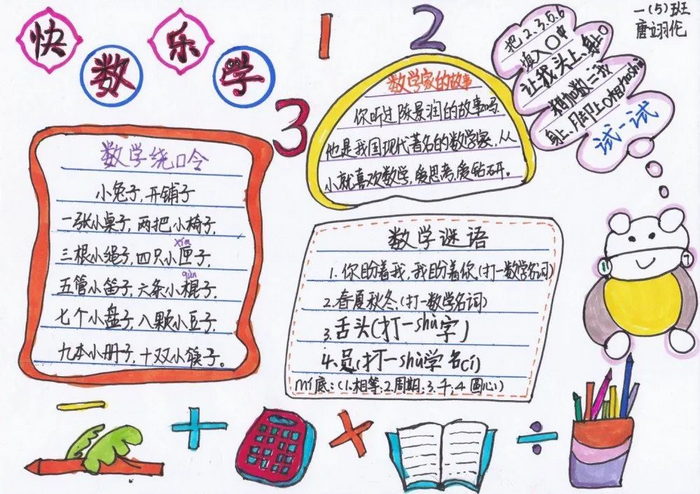 快数乐学
1
2
3
一(5)班
唐翊伦
数学绕口令
小兔子,开铺子
一张小桌子,两把小椅子,
三根小绳子,四只小匣子,
xiá
五管小笛子,六条小棍子,
gùn
七个小盘子,八颗小豆子,
九本小册子,十双小筷子。
数学家的故事
你听过陈景润的故事吗
他是我国现代著名的数学家,从
小就喜欢数学,爱思考,爱钻研。
把2.3.5.6
填入○中
让我头上、身上
试一试
数学谜语
1.你盼着我,我盼着你(打一数学名词)
2.春夏秋冬(打一数学名词)
3.舌头(打一shù字)
4.员(打一shù学名cí)
mí底:(1.相等;2.周期;3.千;4.圆心)
− + × ÷